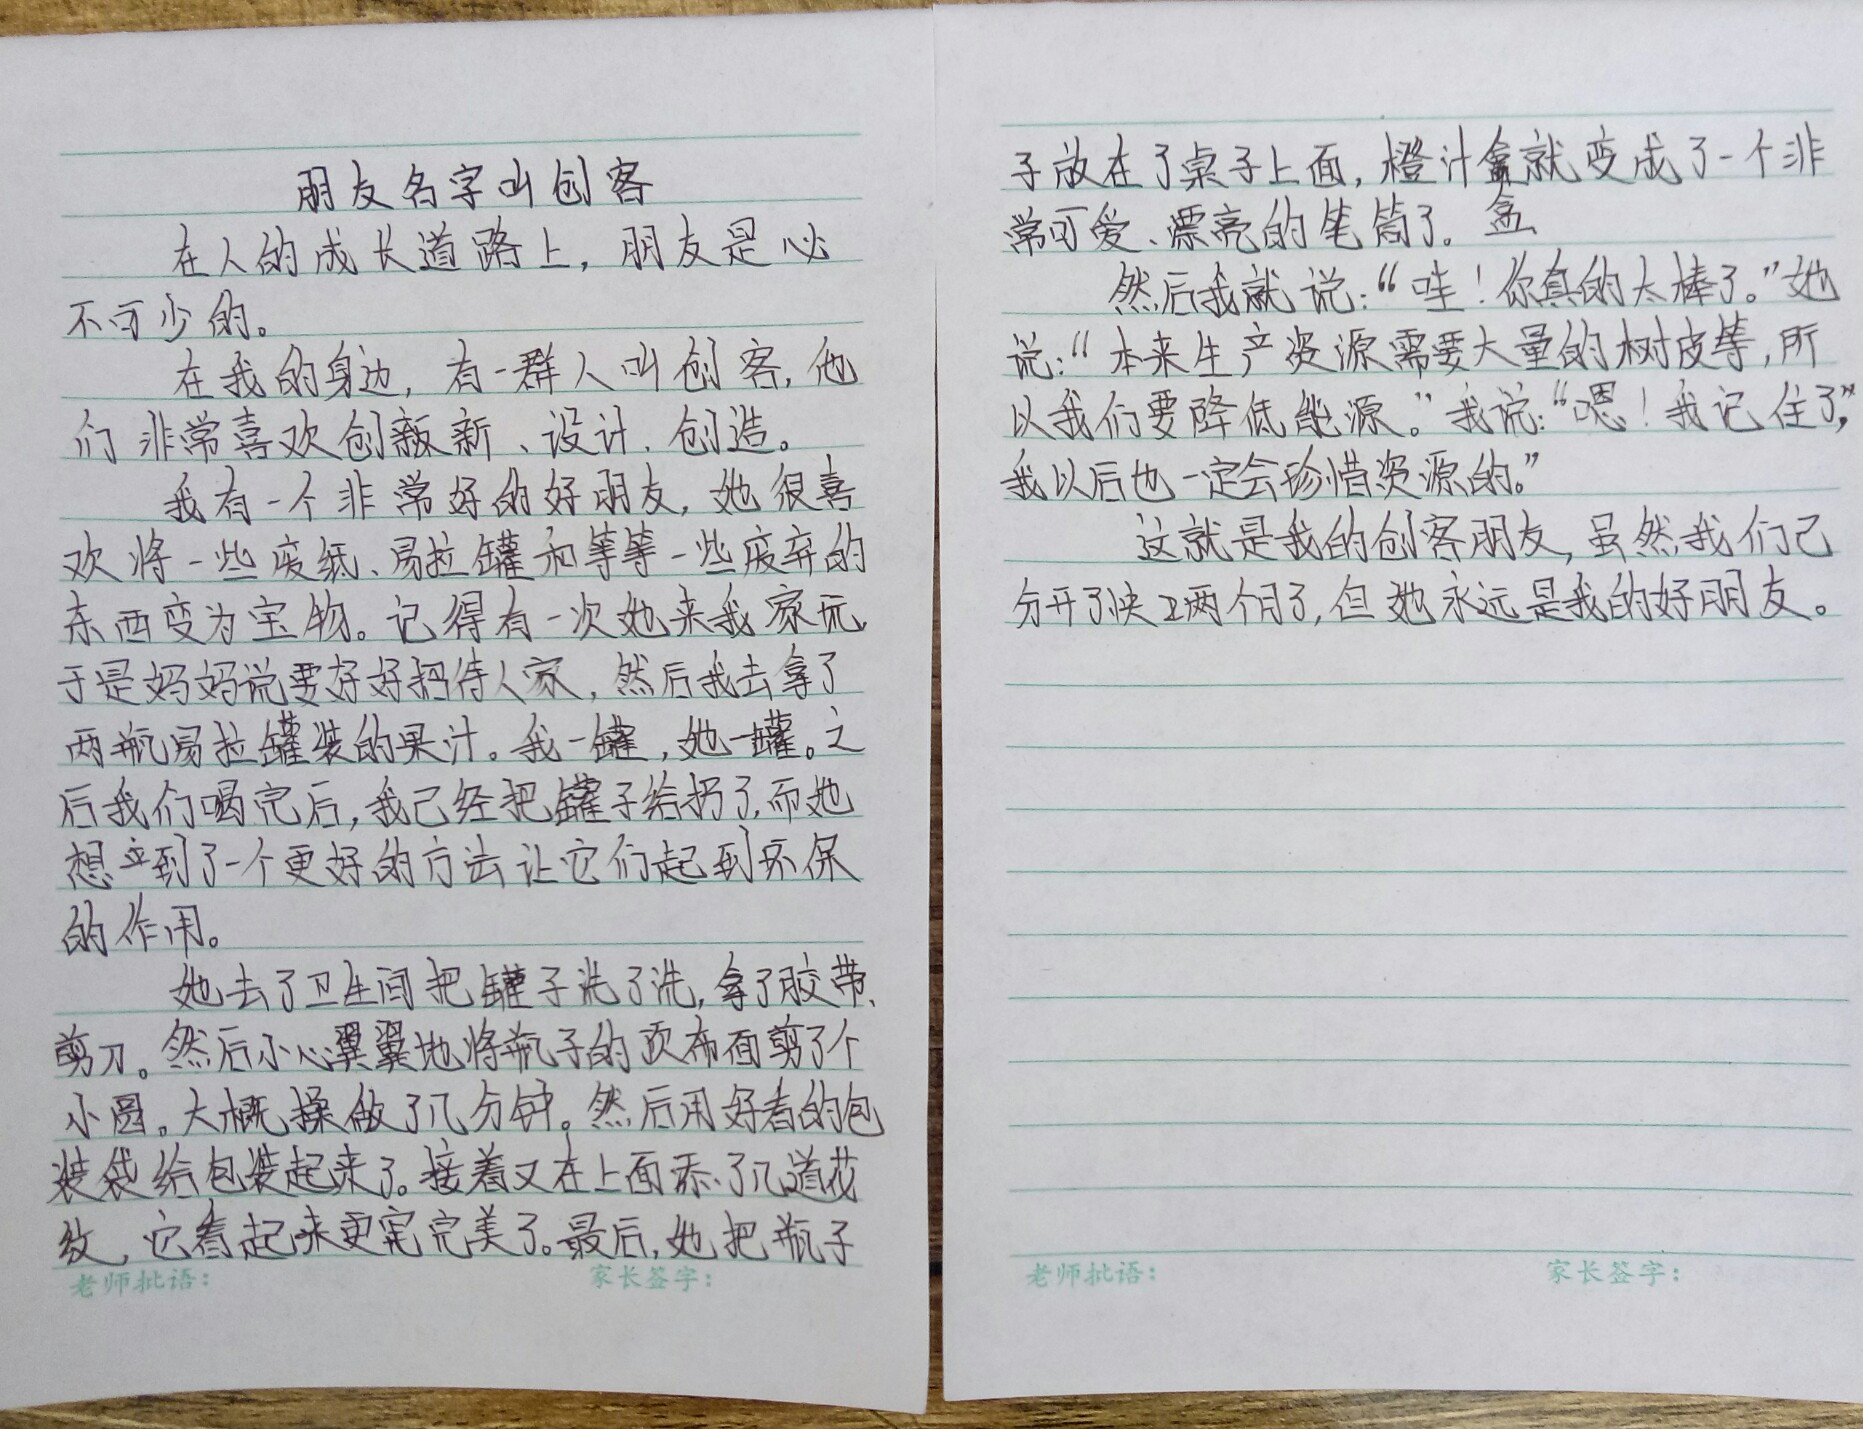 朋友名字叫创客
在人的成长道路上，朋友是必
不可少的。
在我的身边，有一群人叫创客，他
们非常喜欢创新、设计、创造。
我有一个非常好的好朋友，她很喜
欢将一些废纸、易拉罐和等等一些废弃的
东西变为宝物。记得有一次她来我家玩，
于是妈妈说要好好招待人家，然后我去拿了
两瓶易拉罐装的果汁。我一罐，她一罐。之
后我们喝完后，我已经把罐子给扔了，而她
想到了一个更好的方法让它们起到环保
的作用。
她去了卫生间把罐子洗了洗，拿了胶带、
剪刀。然后小心翼翼地将瓶子的顶面剪了个
小圆。大概操做了几分钟。然后用好看的包
装袋给包装起来了。接着又在上面添了几道花
纹，它看起来更完美了。最后，她把瓶子
老师批语：
家长签字：
子放在了桌子上面，橙汁盒就变成了一个非
常可爱、漂亮的笔筒了。盒
然后我就说：“哇！你真的太棒了。”她
说：“本来生产资源需要大量的树皮等，所
以我们要降低能源。”我说：“嗯！我记住了，”
我以后也一定会珍惜资源的。”
这就是我的创客朋友，虽然我们已
分开了快两个月了，但她永远是我的好朋友。
老师批语：
家长签字：